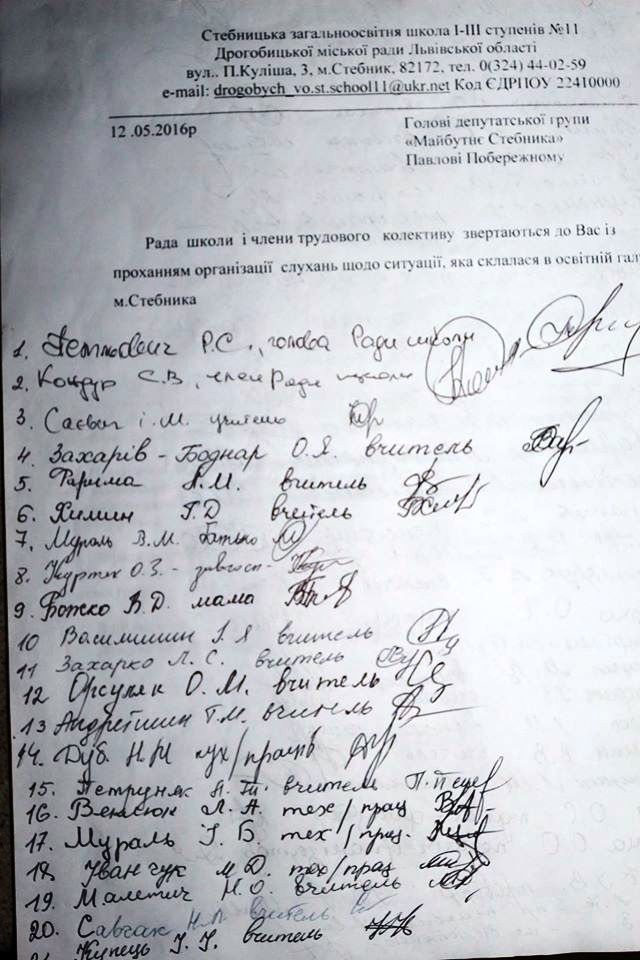 Стебницька загальноосвітня школа І-ІІІ ступенів №11
Дрогобицької міської ради Львівської області
вул.. П.Куліша, 3, м.Стебник, 82172, тел. 0(324) 44-02-59
e-mail: drogobych_vo.st.school11@ukr.net Код ЄДРПОУ 22410000
12 .05.2016р
Голові депутатської групи
«Майбутнє Стебника»
Павлові Побережному
Рада школи і члени трудового колективу звертаються до Вас із
проханням організації слухань щодо ситуації, яка склалася в освітній гал
м.Стебника
1. Р.С., голова Ради школи
2. Кондур С.В, член Ради школи
3. Саєвич І.М. учитель
4. Захарів-Боднар О.Я. вчитель
5. Фарима А.М. вчитель
6. Химин Г.Д вчитель
7. Мураль В.М. батько
8. О.З. - завгосп
9. Божко В.Д. мама
10 Василишин І.Я вчитель
11 Захарко Л.С. вчитель
12 Орсуляк О.М. вчитель
13 Андрейшин Т.М. вчитель
14. Дуб Н.М
15. Петруняк вчитель
16. Л.А. тех/прац
17. Мураль І.Б тех/прац.
18. Іванчук М.Д. тех/прац
19. Малетич Н.О. вчитель
20. Савчак Н.П. вчитель
21. Купець І.І. вчитель